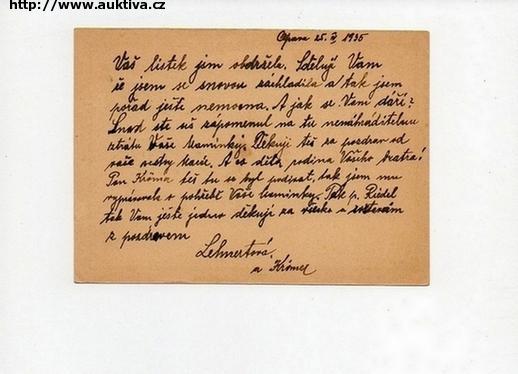 http://www.auktiva.cz
Opava 25. 1935
Váš lístek jsem obdržela. Sděluji Vam
že jsem se znovou záchladila a tak jsem
pořád ješte nemocna. A jak se Vam dáří?
Snad ste už zápomenul na tu nenáhráditelnou
ztrátu Vaše Maminky. Děkuji též za pozdrav od
vaše A co děla rodina Všeho bratra?
Pan Kröma též tu se byl podivat, tak jsem mu
o pohřbě Vaše Maminky. Tak p. Riedel
tak Vam ješte jedno děkuji za všecko a
z pozdravem
Lehnertová
a Krömer